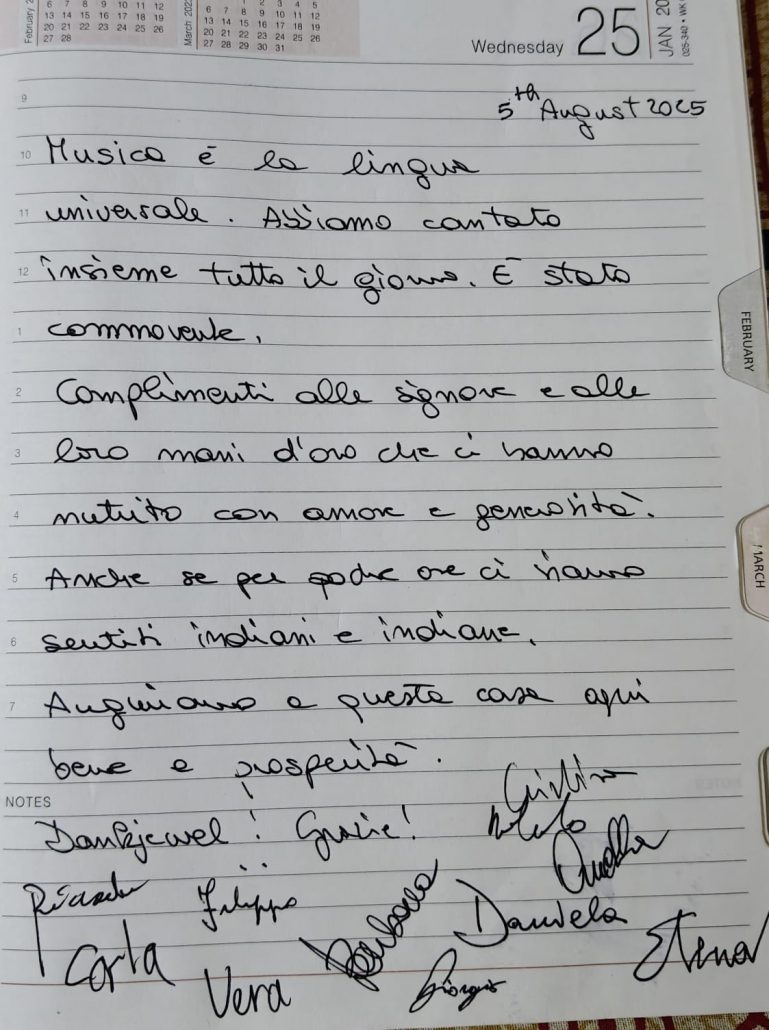 February 2
6 7 8 9 10 11 12
13 14 15 16 17 18 19
20 21 22 23 24 25 26
27 28
March 202
6 7 8 9 10 11 12
13 14 15 16 17 18 19
20 21 22 23 24 25 26
27 28 29 30 31
3 4 5
Wednesday 25
JAN 20
026-340 • WK
9
5th August 2025
10 Musica è la lingua
11 universale. Abbiamo cantato
12 insieme tutto il giorno. È stato
1 commovente.
2 Complimenti alle signore e alle
3 loro mani d'oro che ci hanno
4 nutrito con amore e generosità.
5 Anche se per poche ore ci hanno
6 sentiti indiani e indiane.
7 Auguriamo a questa casa ogni
bene e prosperità.
NOTES
Dankjewel! Grazie!
Riccardo Filippo
Carla Vera Barbara Daniela
Giorgio
FEBRUARY
MARCH